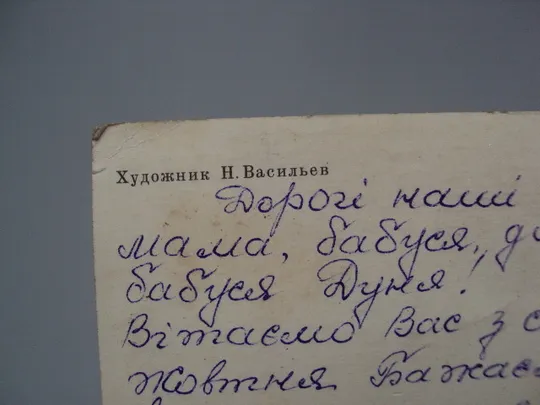 Художник Н. Васильев
Дорогі наші
мама, бабуся,
бабуся Дуня!
Вітаємо Вас з
жовтня. Бажаєм